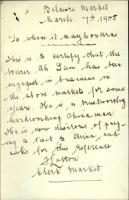 Belmore Market
March. 7th 1908
To whom it may concern
This is to certify that the
bearer Ah Lam, has been
engaged in business in
the above markets for some
years. He is a trustworthy
hardworking Chinaman
He is now desirous of pay
ing a visit to China, and
asks for this reference
Clerk Market